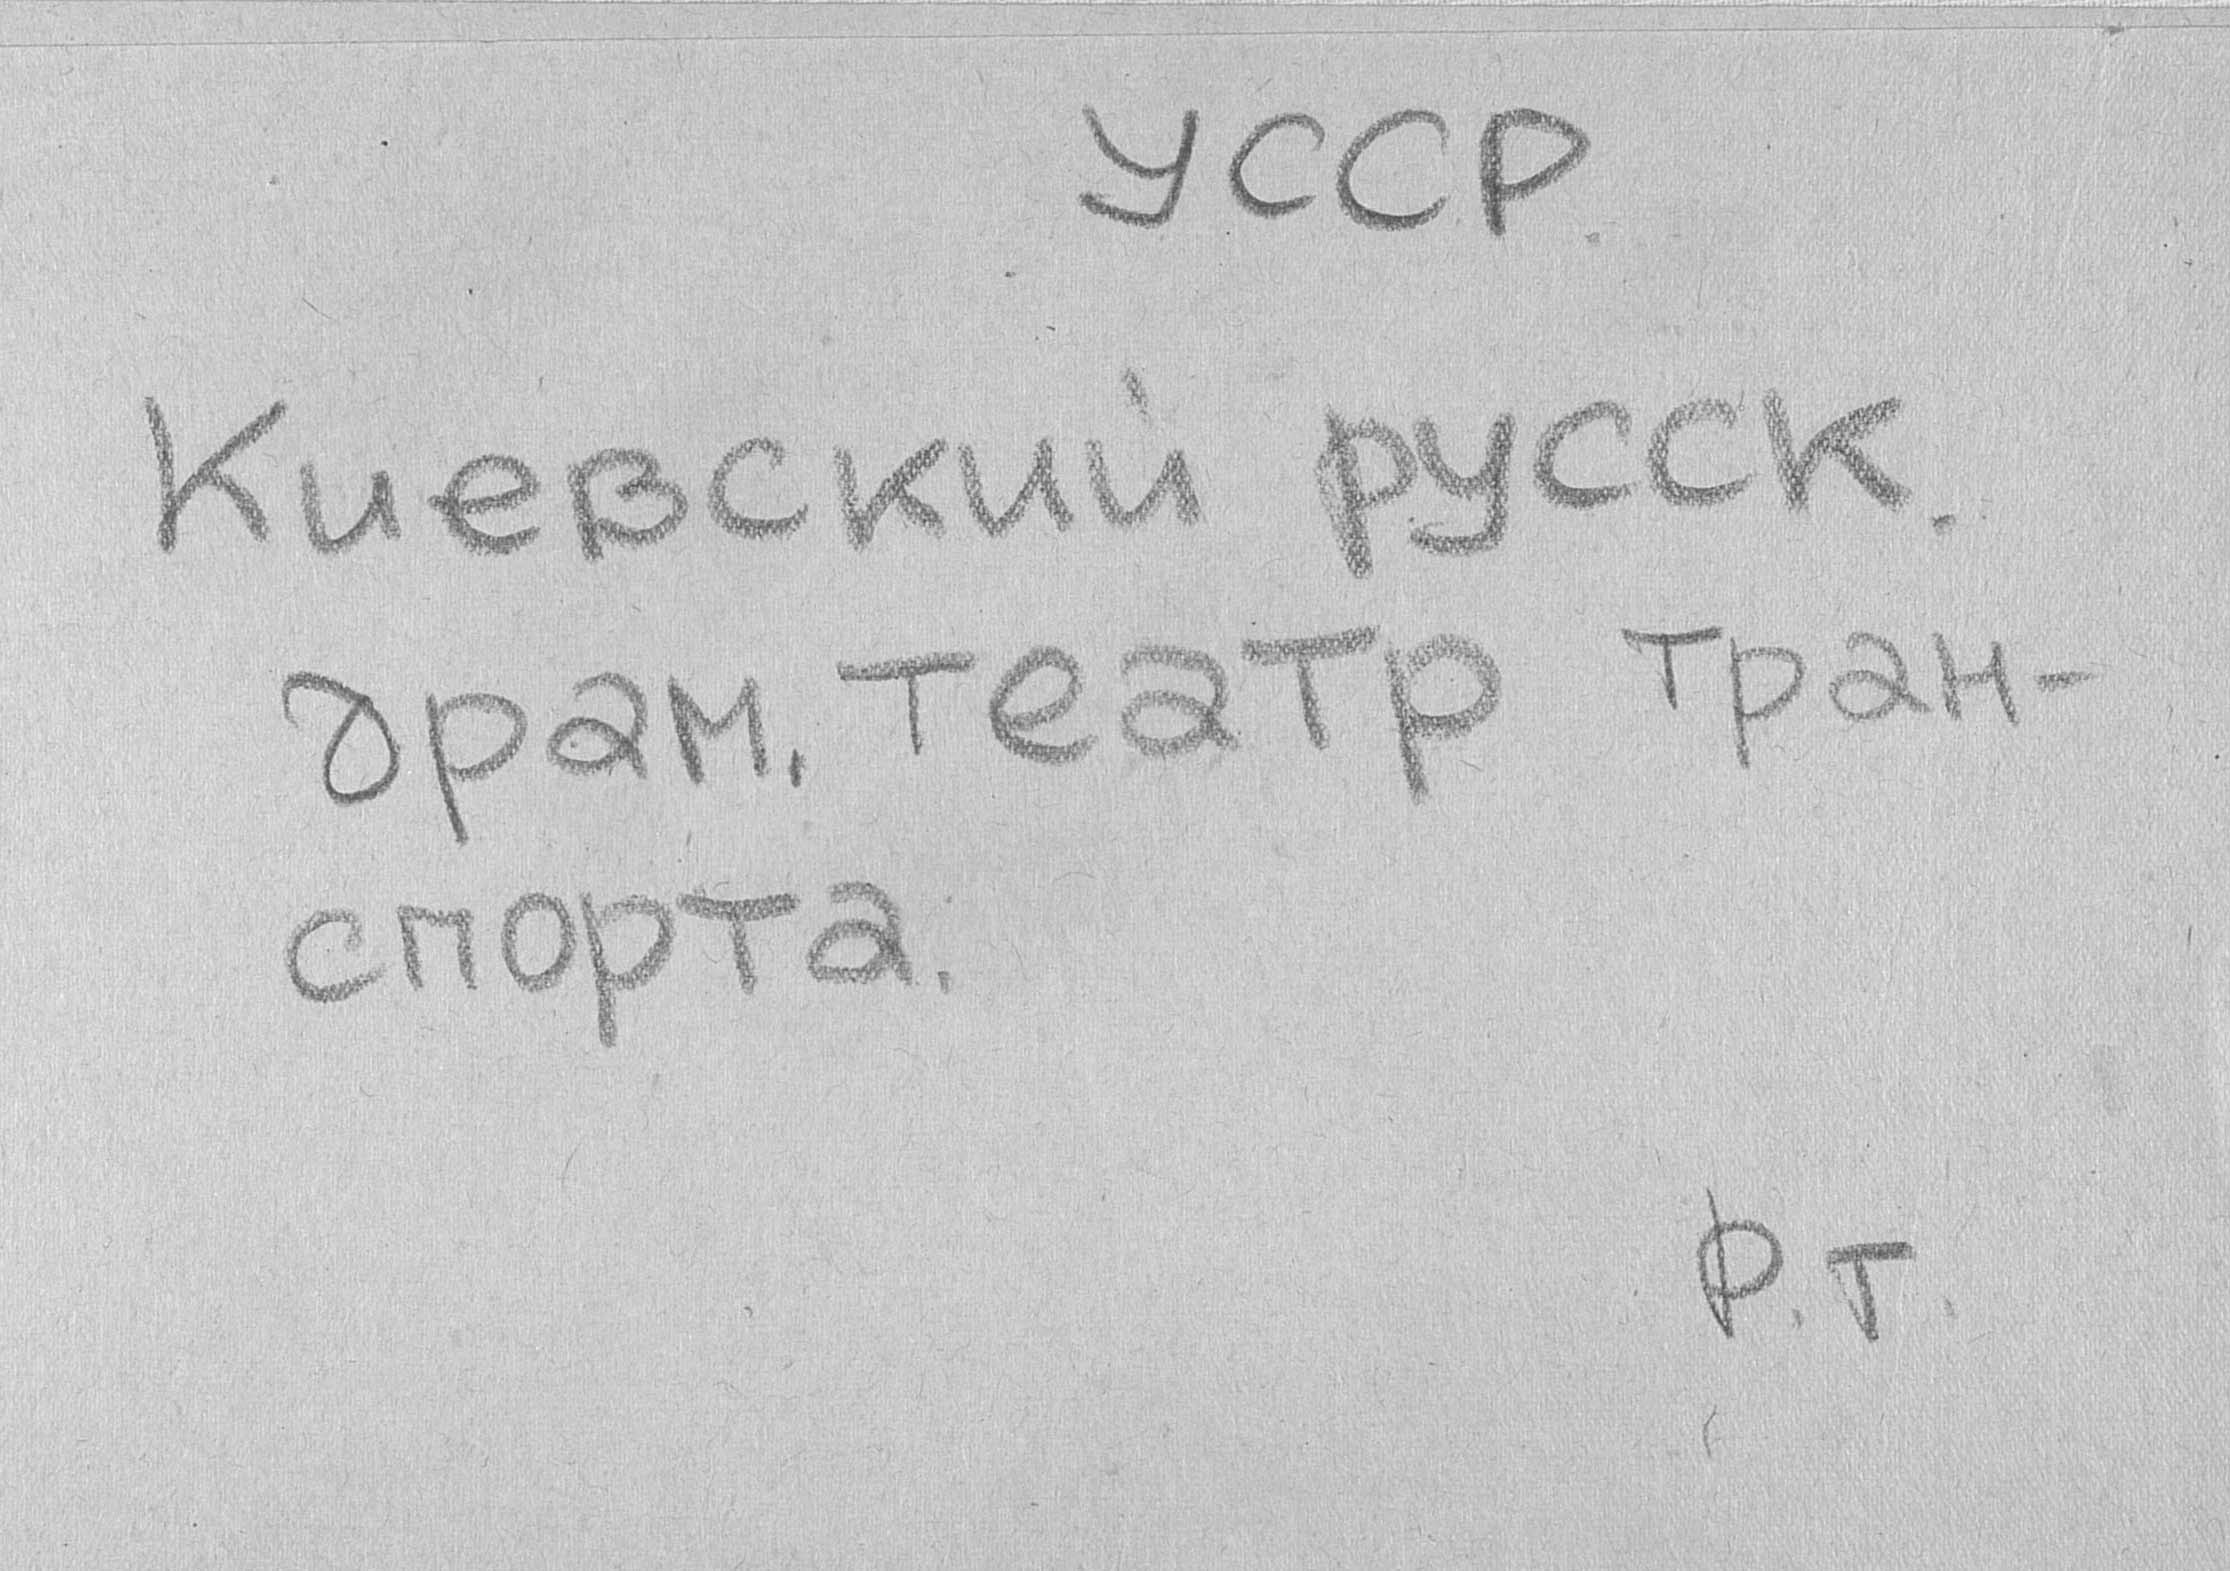 УССР.
Киевский русск.
драм. театр тран-
спорта.
Р.Т.